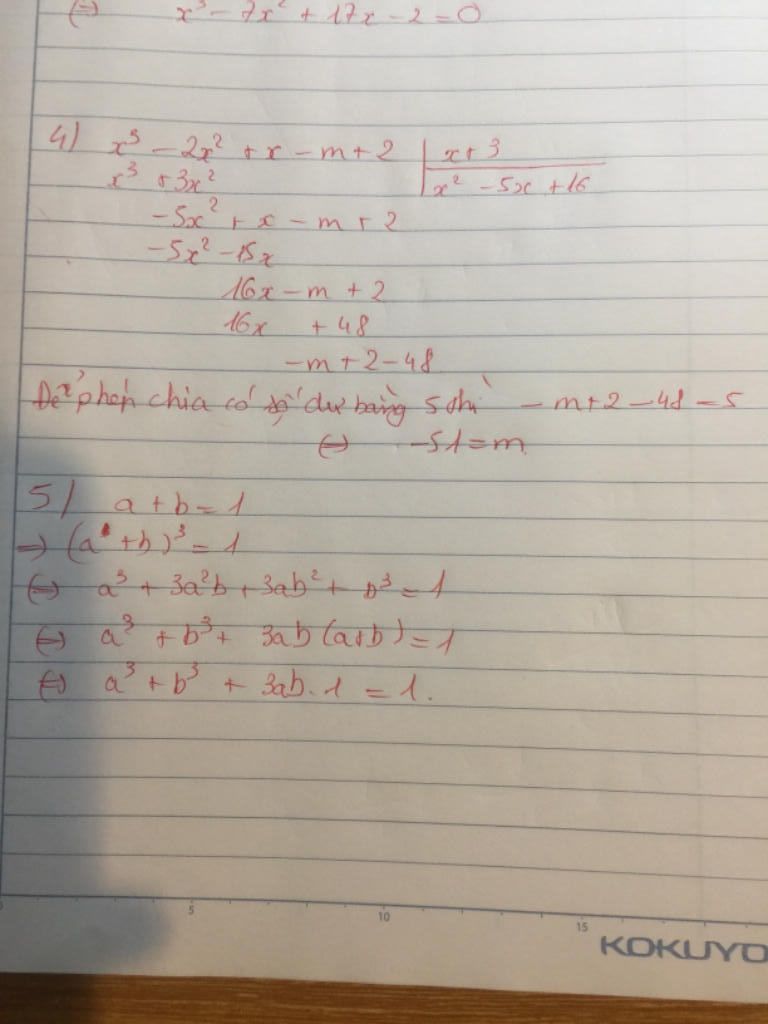 (=) x³ - 7x² + 17x - 2 = 0
4) x³ - 2x² + x - m + 2 | x + 3
x³ + 3x² | x² - 5x + 16
-5x² + x - m + 2
-5x² - 15x
16x - m + 2
16x + 48
-m + 2 - 48
Để phép chia có số dư bằng 5 thì - m + 2 - 48 = 5
(=) -51 = m
5) a + b = 1
=) (a + b)³ = 1
(=) a³ + 3a²b + 3ab² + b³ = 1
(=) a³ + b³ + 3ab (a+b) = 1
(=) a³ + b³ + 3ab . 1 = 1.
5 10 15
KOKUYO